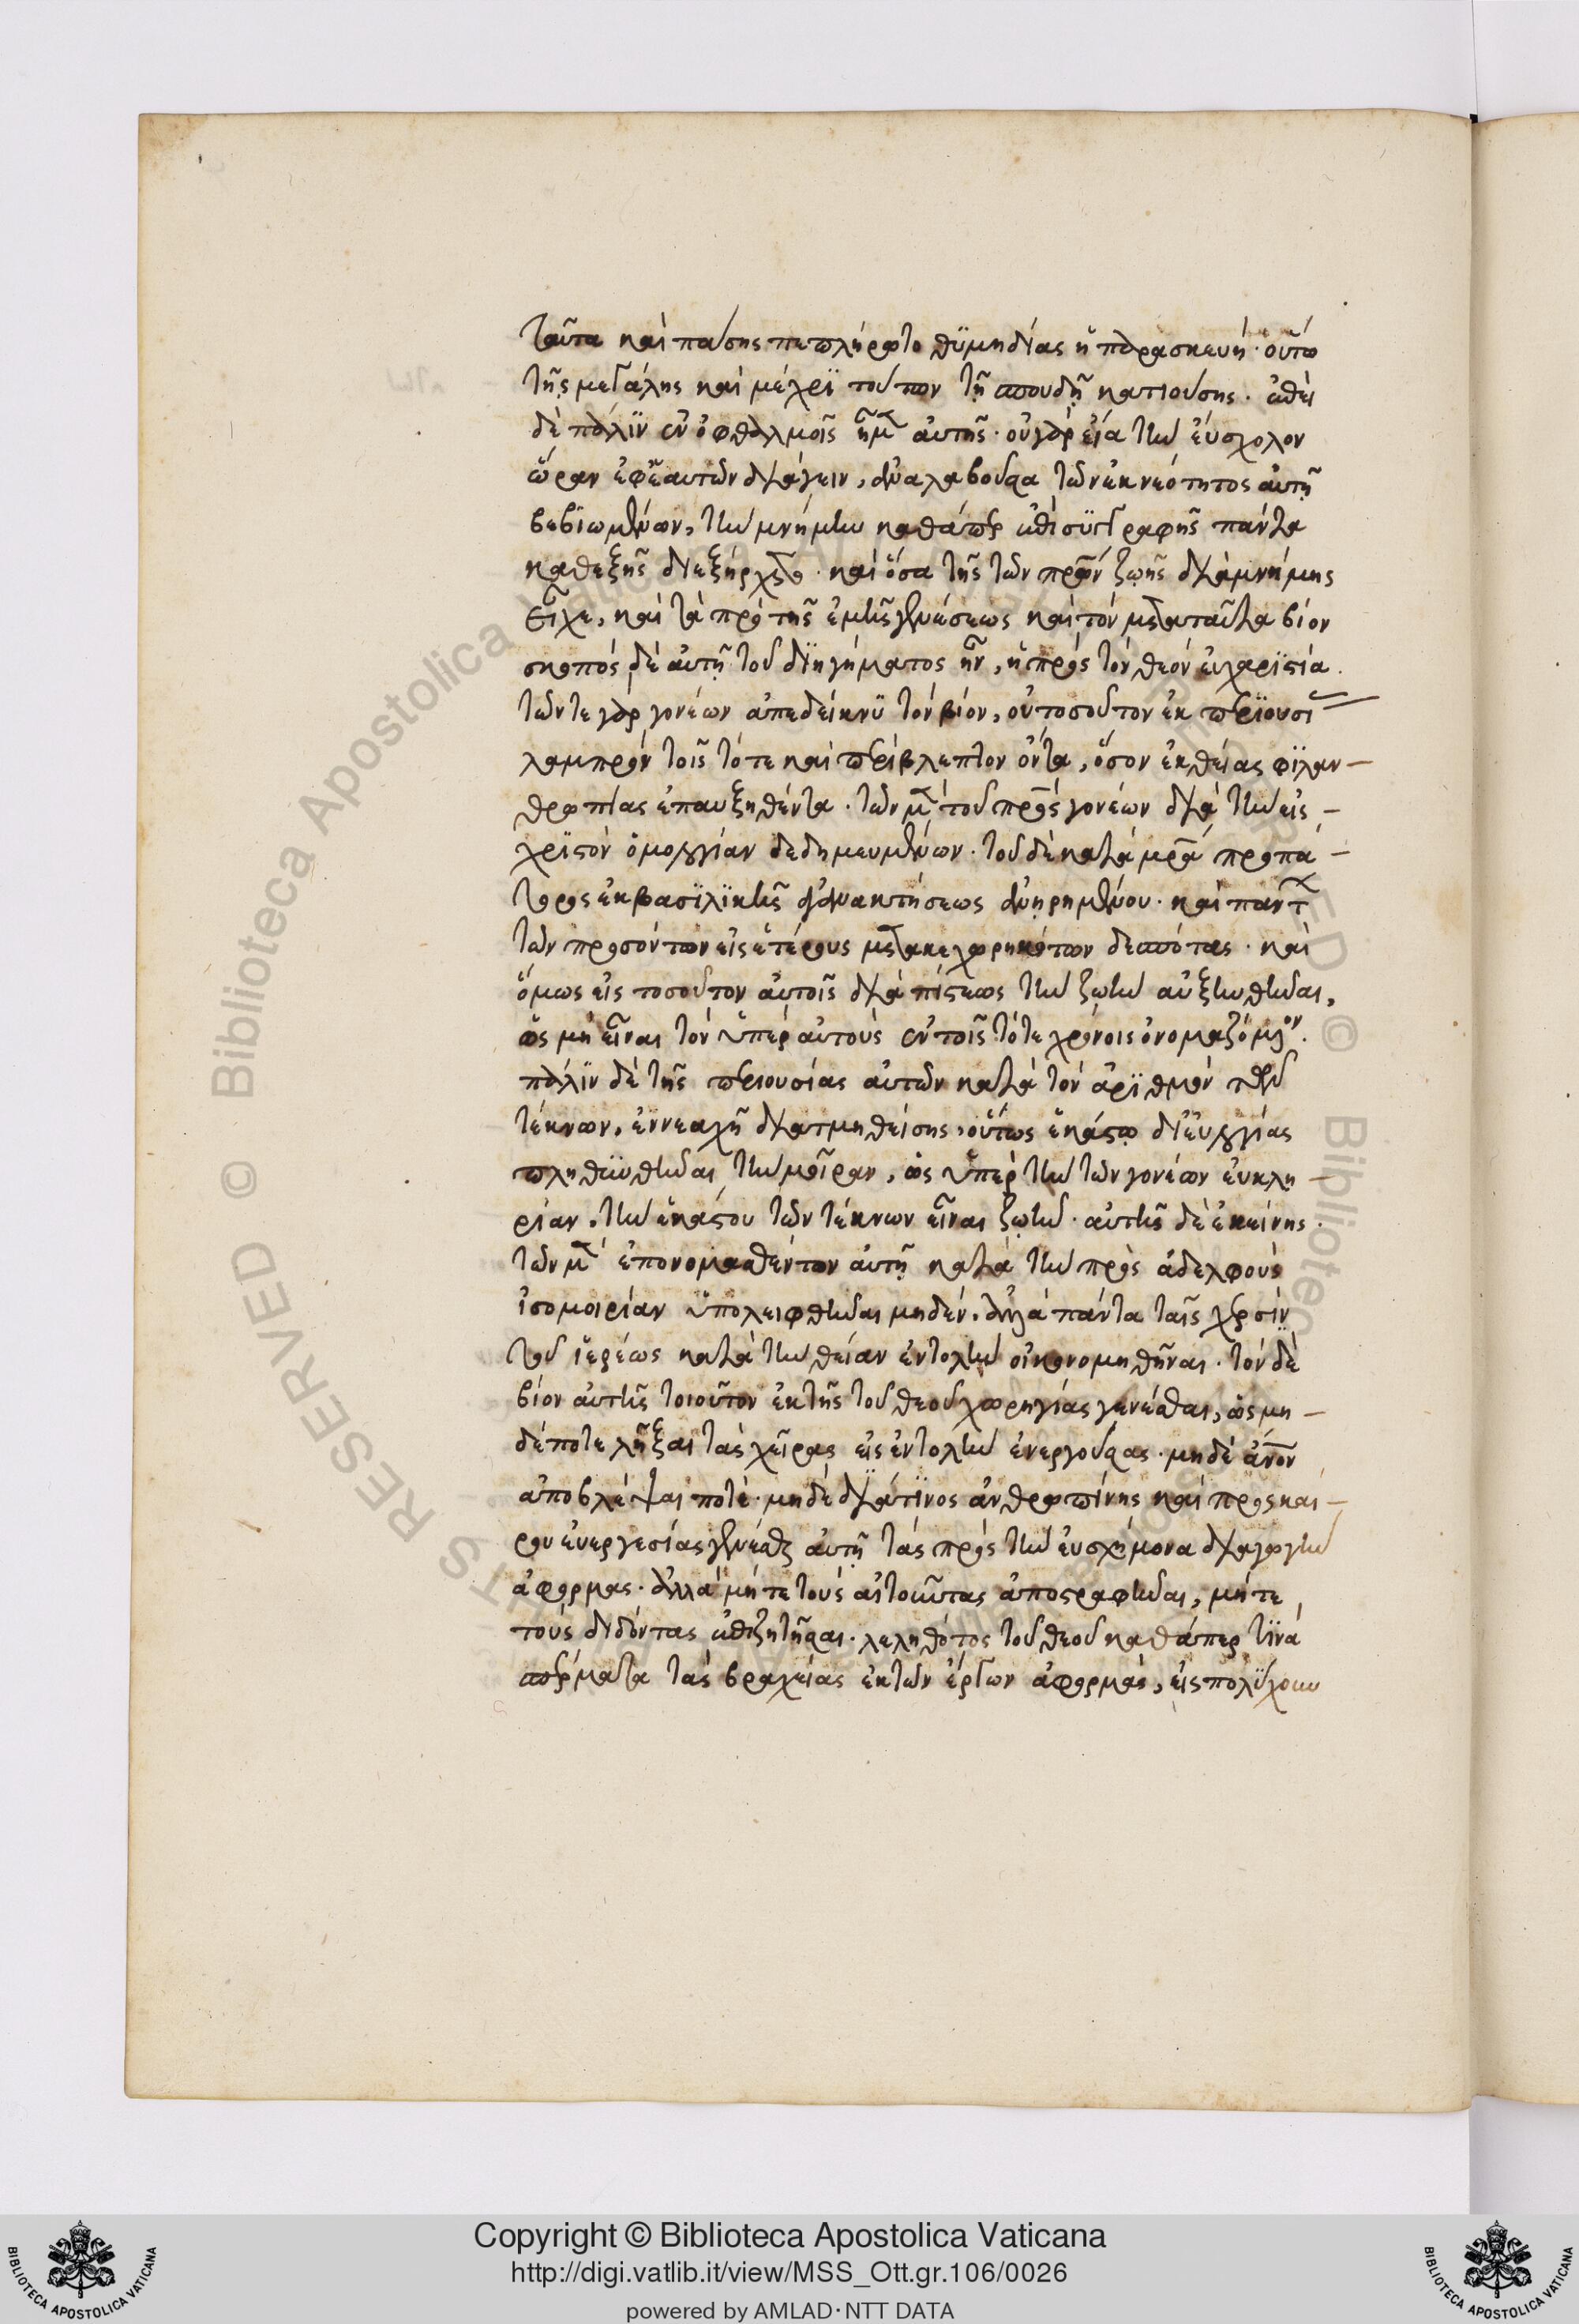 ταῦτα καὶ πάσης πεπλήρωτο θυμηδίας ἡ παρασκευή· οὕτω
τῆς μεγάλης καὶ μέχρϊ τούτων τῇ σπουδῇ κατιούσης. ἐπεὶ
δὲ πάλϊν ἐν ὀφθαλμοῖς ἦμεν αὐτῆς· οὐ γὰρ εἴα τὴν εὔσχολον
ὥραν ἐφ' ἑαυτῶν διάγειν, ἀναλαβοῦσα τῶν ἐκ νεότητος αὐτῇ
βεβϊωμένων, τὴν μνήμην καθάπερ ἐπὶ συγγραφῆς πάντα
καθεξῆς διεξήρχετο· καὶ ὅσα τῆς τῶν πατέρων ζωῆς διὰ μνήμης
εἶχε, καὶ τὰ πρὸ τῆς ἐμῆς γενέσεως καὶ τὸν μετὰ ταῦτα βίον
σκοπὸς δὲ αὐτῇ τοῦ διηγήματος ἦν, ἡ πρὸς τὸν θεὸν εὐχαρϊστία.
τῶν τε γὰρ γονέων ἀπεδείκνϋ τὸν βίον, οὐ τοσοῦτον ἐκ περϊουσίας
λαμπρὸν τοῖς τότε καὶ περίβλεπτον ὄντα, ὅσον ἐκ θείας φϊλαν-
θρωπίας ἐπαυξηθέντα. τῶν μὲν τοῦ πατρὸς γονέων διὰ τὴν εἰς -
χρϊστὸν ὁμολογίαν δεδημευμένων. τοῦ δὲ κατὰ μητέρα προπά-
τορος ἐκ βασϊλϊκῆς ἀγανακτήσεως ἀνῃρημένου. καὶ πάντων
τῶν προσόντων εἰς ἑτέρους μετακεχωρηκότων δεσπότας. καὶ
ὅμως εἰς τοσοῦτον αὐτοῖς διὰ πίστεως τὴν ζωὴν αὐξηθῆναι,
ὡς μὴ εἶναι τὸν ὑπὲρ αὐτοὺς ἐν τοῖς τότε χρόνοις ὀνομαζόμενον.
πάλϊν δὲ τῆς περιουσίας αὐτῶν κατὰ τὸν ἀρϊθμὸν τῶν
τέκνων, ἐννεαχῇ διατμηθείσης, οὕτως ἑκάστῳ δι' εὐλογίας
πληθϋνθῆναι τὴν μοῖραν, ὡς ὑπὲρ τὴν τῶν γονέων εὐκλη-
ρίαν, τὴν ἑκάστου τῶν τέκνων εἶναι ζωήν. αὐτῆς δὲ ἐκείνης.
τῶν μὲν ἐπονομασθέντων αὐτῇ κατὰ τὴν πρὸς ἀδελφοὺς
ἰσομοιρίαν ὑπολειφθῆναι μηδέν. ἀλλὰ πάντα ταῖς χερσὶν
τοῦ ἱερέως κατὰ τὴν θείαν ἐντολὴν οἰκονομηθῆναι. τὸν δὲ
βίον αὐτῆς τοιοῦτον ἐκ τῆς τοῦ θεοῦ χωρηγίας γενέσθαι, ὡς μη-
δέποτε λῆξαι τὰς χεῖρας εἰς ἐντολὴν ἐνεργούσας. μηδὲ ἄνθρωπον
ἀποβλέψαι ποτέ. μηδὲ διά τϊνος ἀνθρωπίνης καὶ προσκαι-
ρου εὐεργεσίας γενέσθαι αὐτῇ τὰς πρὸς τὴν εὐσχήμονα διαγωγὴν
ἀφορμάς. ἀλλὰ μήτε τοὺς αἰτοῦντας ἀποστραφῆναι, μήτε
τοὺς διδόντας ἐπιζητῆσαι. λεληθότος τοῦ θεοῦ καθάπερ τϊνὰ
σπέρματα τὰς βραχείας ἐκ τῶν ἔργων ἀφορμάς, εἰς πολύχουν
Copyright © Biblioteca Apostolica Vaticana
http://digi.vatlib.it/view/MSS_Ott.gr.106/0026
powered by AMLAD·NTT DATA